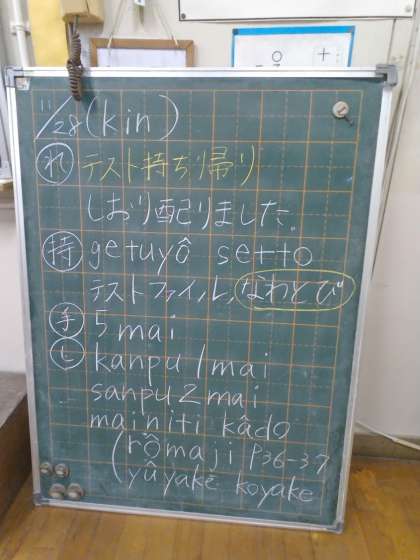 11/28 (kin)
れ テスト持ち帰り
しおり配りました。
持 getuyô setto
テストファイル, なわとび
手 5 mai
し kanpu 1 mai
sanpu 2 mai
mainiti kâdo
(rômaji P36-37
yûyake koyake